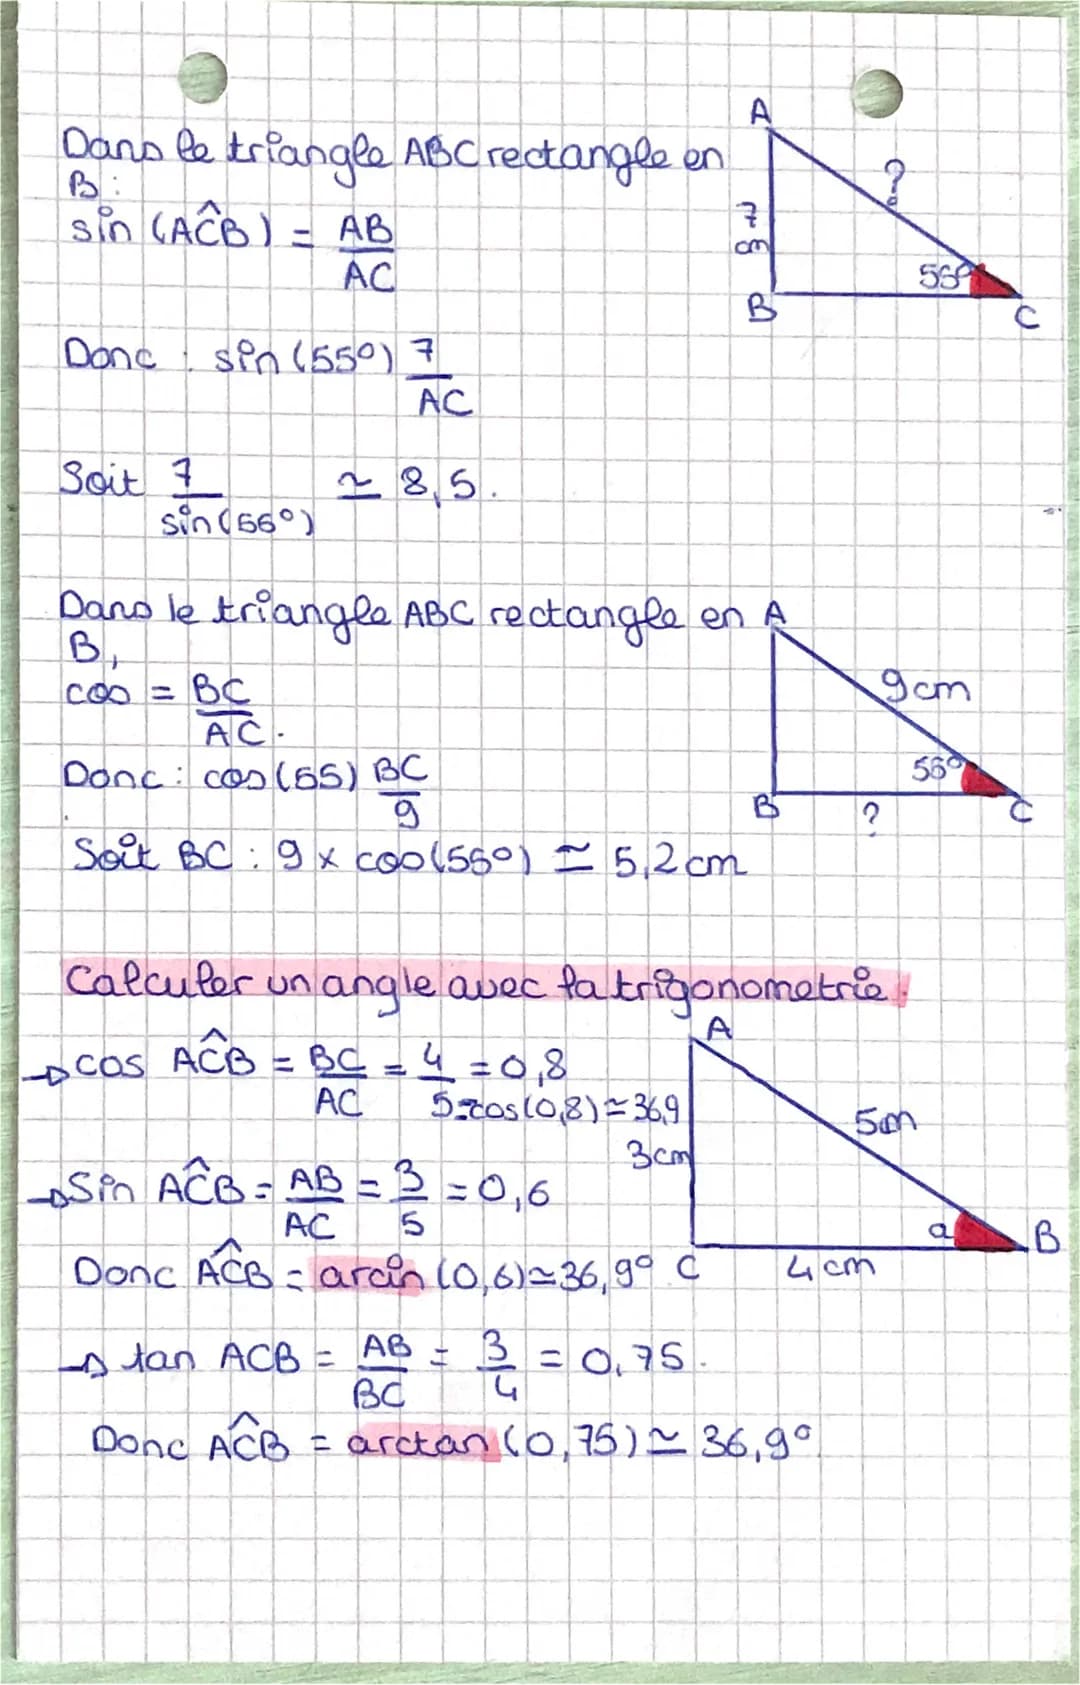 Dans le triangle ABC rectangle en
B :
sin (AĈB) = AB/AC
Donc : sin (55°) 7/AC
Soit 7/sin(55°) ≃ 8,5.
A
?
7
cm
55°
B
C
Dans le triangle ABC rectangle en
B,
cos = BC/AC.
Donc : cos(55) BC/9
Soit BC : 9 x cos(55°) ≃ 5,2 cm
A
9cm
55°
B
?
C
Calculer un angle avec la trigonometrie.
→ cos AĈB = BC/AC = 4/5 = 0,8
cos(0,8) ≃ 36,9
→ Sin AĈB = AB/AC = 3/5 = 0,6
Donc AĈB = arcin (0,6) ≃ 36,9°
→ tan ACB = AB/BC = 3/4 = 0,75.
Donc AĈB = arctan (0,75) ≃ 36,9°
A
5cm
3cm
a
B
C
4cm